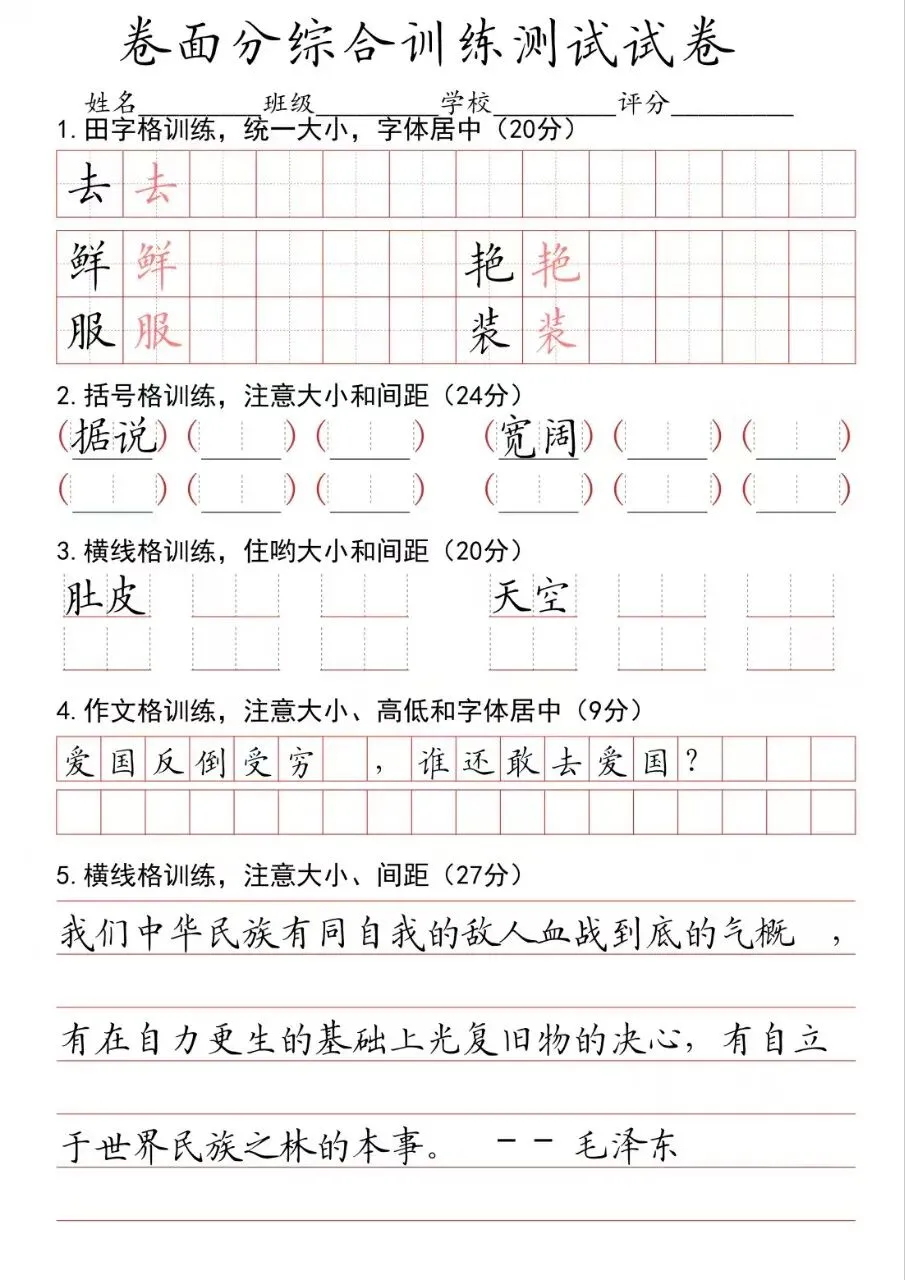 卷面分综合训练测试试卷
姓名_________班级_________学校_________评分_________
1.田字格训练，统一大小，字体居中（20分）
去 去
鲜 鲜 艳 艳
服 服 装 装
2.括号格训练，注意大小和间距（24分）
（据说）（ ）（ ）（宽阔）（ ）（ ）
（ ）（ ）（ ）（ ）（ ）（ ）
3.横线格训练，住哟大小和间距（20分）
肚皮 天空
4.作文格训练，注意大小、高低和字体居中（9分）
爱国反倒受穷 ，谁还敢去爱国？
5.横线格训练，注意大小、间距（27分）
我们中华民族有同自我的敌人血战到底的气概 ，
有在自力更生的基础上光复旧物的决心，有自立
于世界民族之林的本事。 －－ 毛泽东